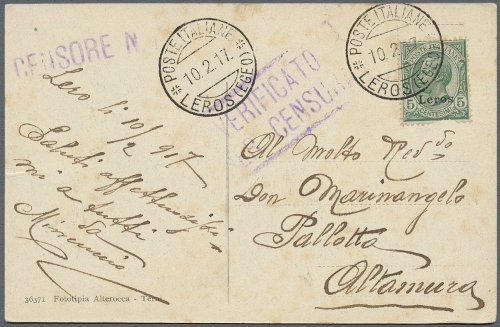 CENSORE N.
POSTE ITALIANE
10.2.17.
* LEROS (EGEO) *
VERIFICATO
CENSURA
POSTE ITALIANE
10.2.17.
* LEROS (EGEO) *
5 5
CENTESIMI
Leros
Lero li 10/2 917
Saluti affettuosissi
mi a tutti
da
Al Molto Rev.do
Don Marinangelo
Pallotta
Altamura
36371 Fototipia Alterocca - Terni